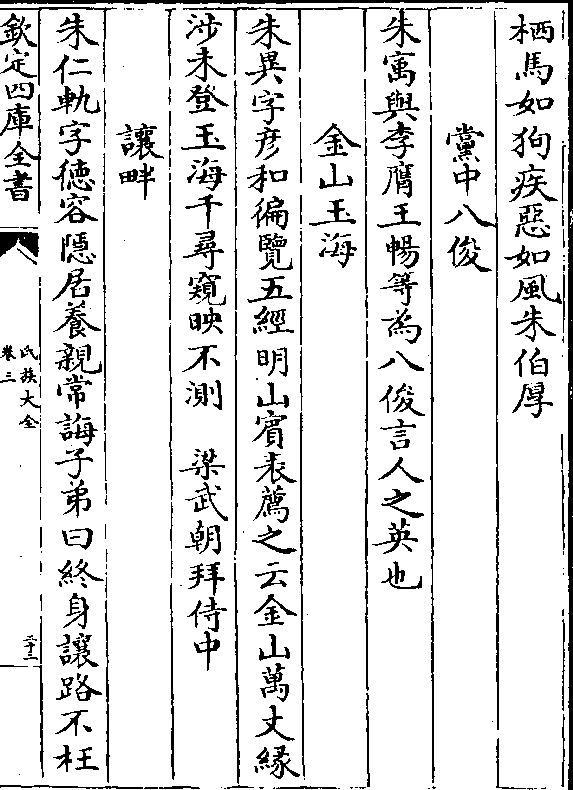 栖馬如狗疾惡如風朱伯厚
黨中八俊
朱寓與李膺王暢等為八俊言人之英也
金山玉海
朱異字彦和徧覽五經明山賓表薦之云金山萬丈縁
涉未登玉海千尋窺映不測　梁武朝拜侍中
讓畔
朱仁軌字徳容隠居養親常誨子弟曰終身讓路不枉
欽定四庫全書
氏族大全
卷三
二十三